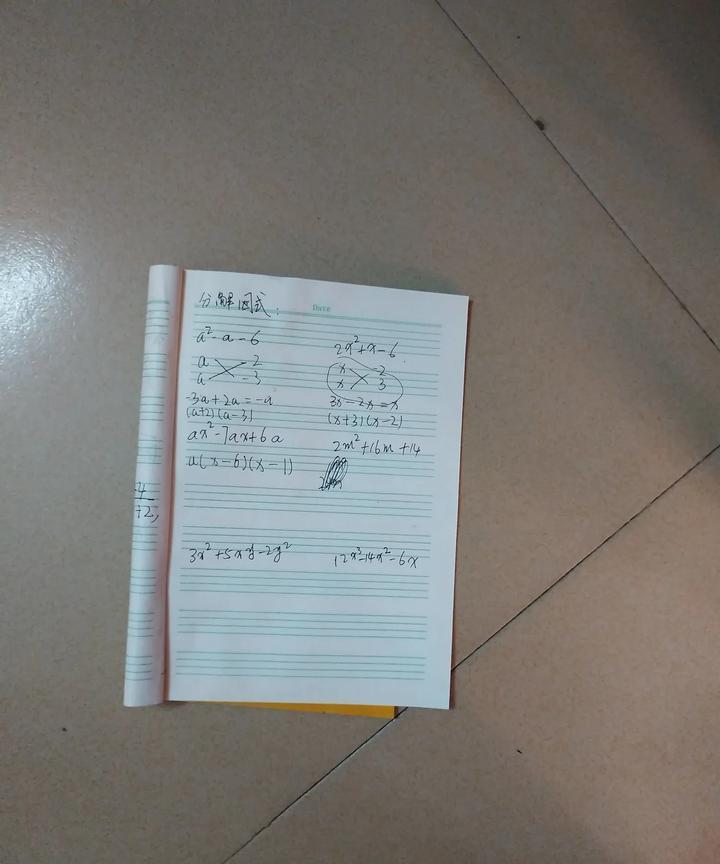 Date
分解因式:
a²-a-6
a 2
a -3
-3a+2a=-a
(a+2)(a-3)
ax²-7ax+6a
a(x-6)(x-1)
2x²+x-6.
x -2
x 3
3x-2x=x
(x+3)(x-2)
2m²+16m+14
3x²+5xy-2y²
12x³-14x²-6x
-4
+2,